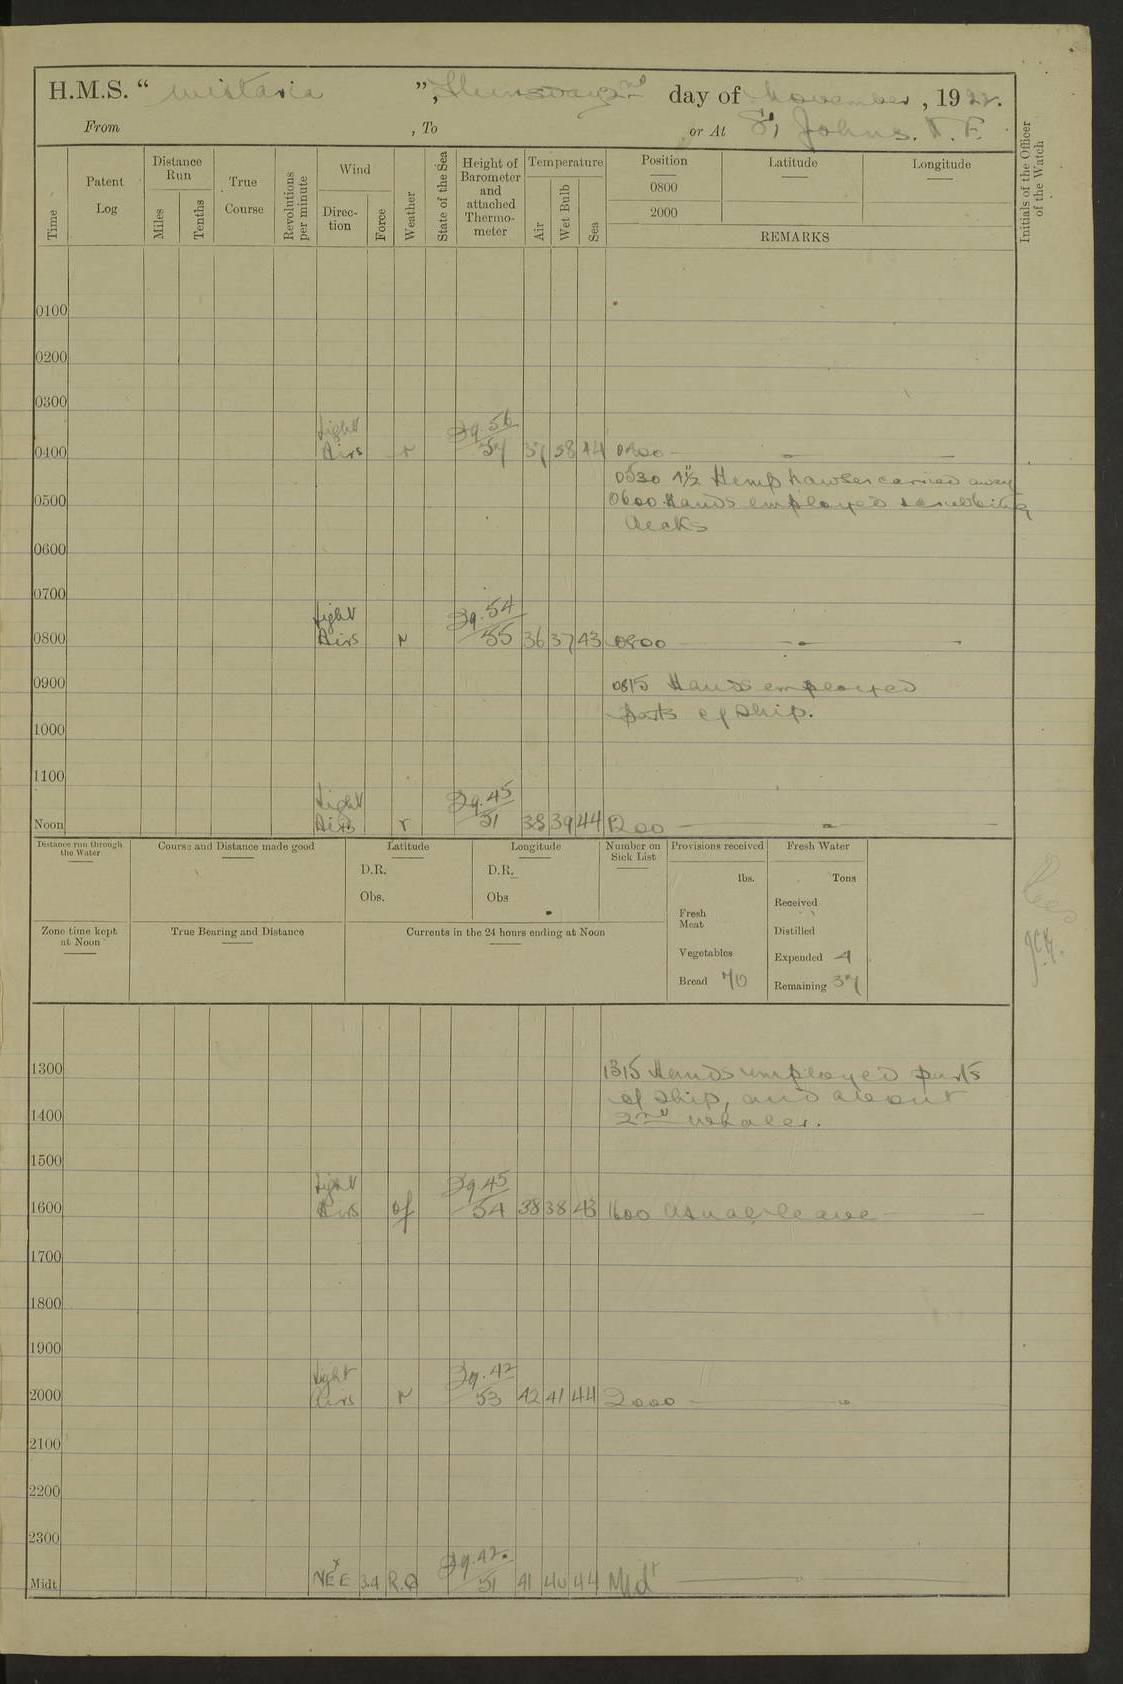 H.M.S. " Wistaria ", Thursday 2nd day of November, 1922.
From , To or At St Johns. N.F.
Time
Patent Log
Distance Run
Miles
Tenths
True Course
Revolutions per minute
Wind
Direc-tion
Force
Weather
State of the Sea
Height of Barometer and attached Thermo-meter
Temperature
Air
Wet Bulb
Sea
Position
0800
2000
Latitude
Longitude
REMARKS
Initials of the Officer of the Watch
0100
0200
0300
Light 29.56
0400 Airs r 57 37 38 44 0400 —
0530 4½ Hemp hawser carried away
0500 0600 Hands employed scrubbing
decks
0600
0700
Light 29.54
0800 Airs r 55 36 37 43 0800 —
0900 0815 Hands employed
parts of ship.
1000
1100
Light 29.45
Noon Airs r 51 38 39 44 1200 —
Distance run through the Water
Course and Distance made good
Latitude
D.R.
Obs.
Longitude
D.R.
Obs
Number on Sick List
Provisions received
lbs.
Fresh Meat
Vegetables
Bread 70
Fresh Water
Tons
Received
Distilled
Expended 4
Remaining 37
Zone time kept at Noon
True Bearing and Distance
Currents in the 24 hours ending at Noon
1300 1315 Hands employed parts
of ship, and about
1400 2nd whaler.
1500
Light 29.45
1600 Airs of 54 38 38 43 1600 Usual leave —
1700
1800
1900
Light 29.42
2000 Airs r 53 42 41 44 2000 —
2100
2200
2300
29.42.
Midt. NExE 3.4 R.Q 51 41 40 44 Midt —